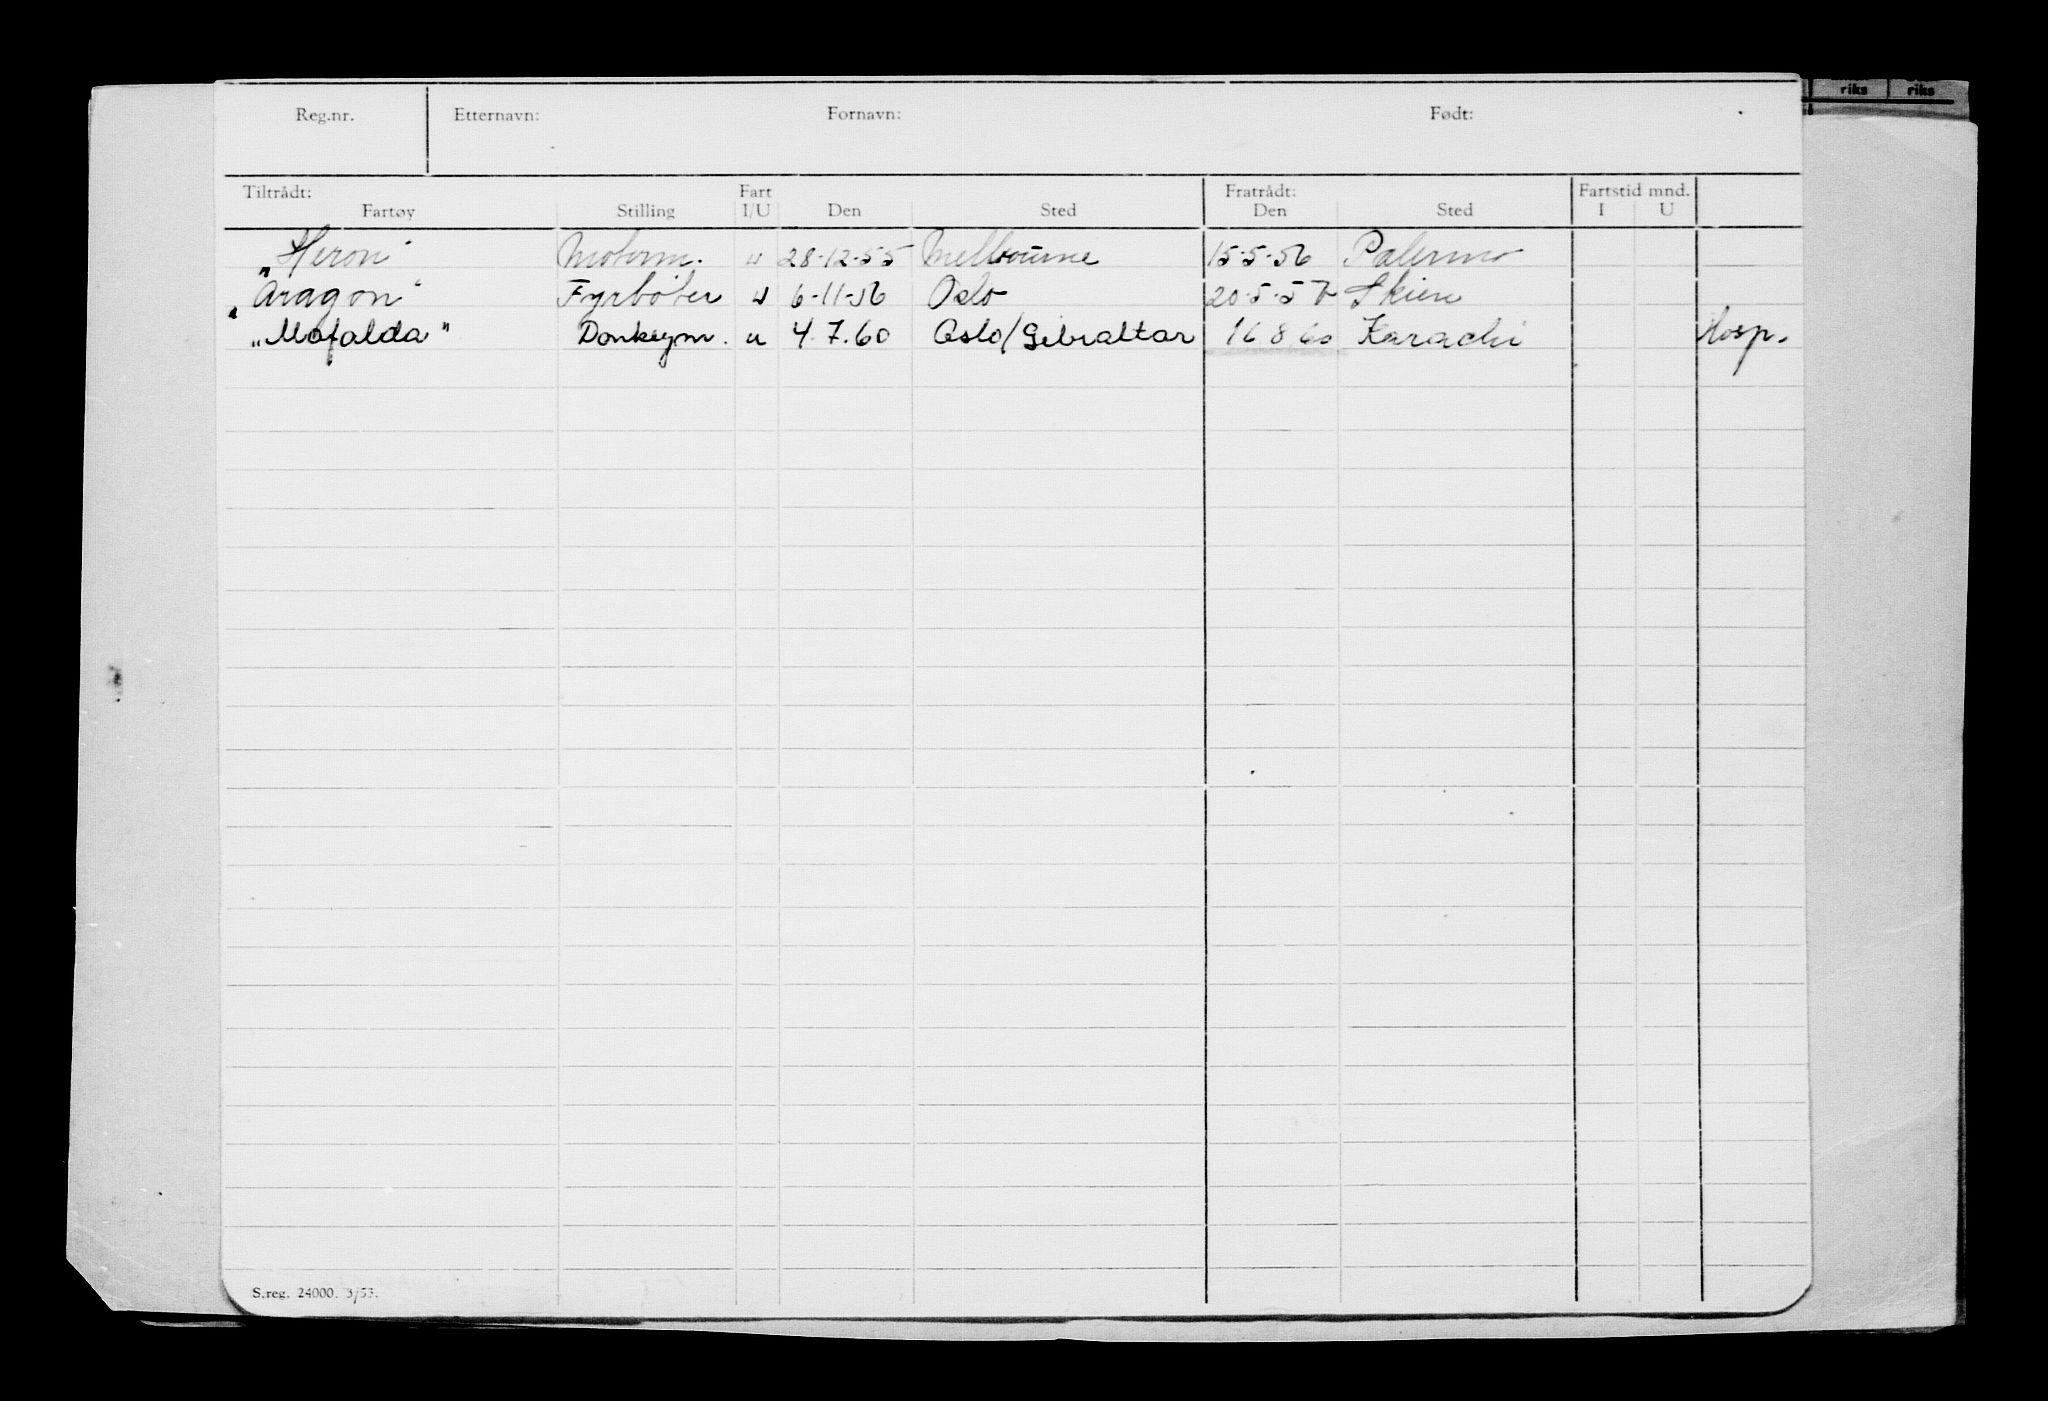 riks riks
Reg.nr. Etternavn: Fornavn: Født:
Tiltrådt: Fart Fratrådt: Fartstid mnd.
Fartøy Stilling I/U Den Sted Den Sted I U
„Heron" Motorm. u 28-12-55 Melbourne 15-5-56 Palermo
„Aragon" Fyrbøter u 6-11-56 Oslo 20-5-57 Skien
„Mafalda" Donkeym. u 4.7.60 Oslo/Gibraltar 16 8 60 Karachi Hosp.
S.reg. 24000. 3/53.